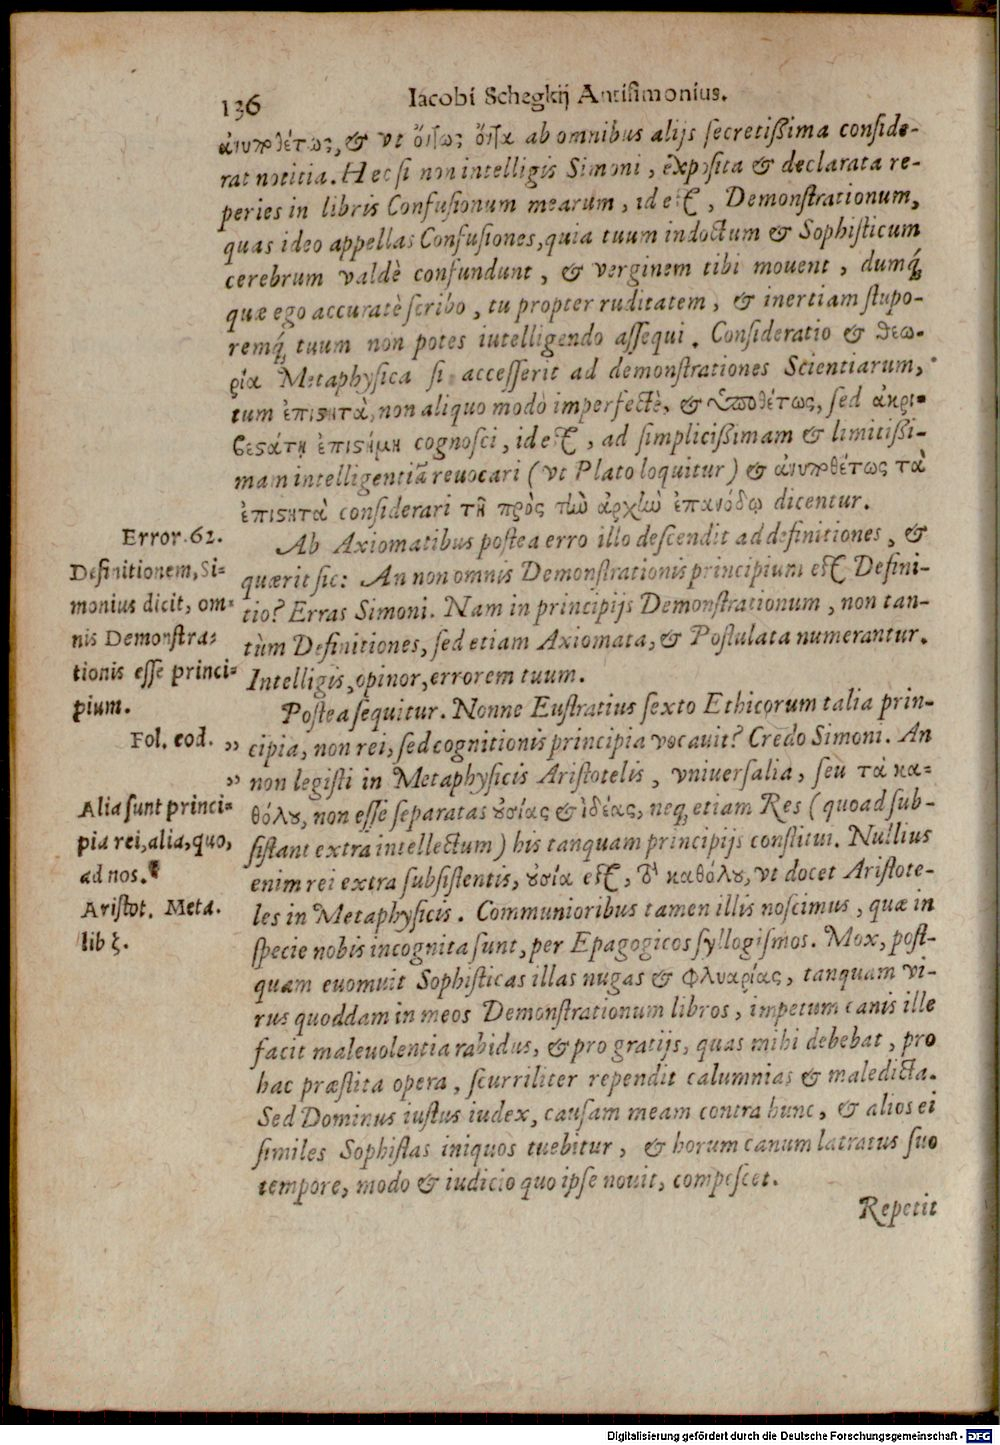 136
Iacobi Schegkij Antisimonius.
ἀνυποθέτως, & vt ὄντως ὄντα ab omnibus alijs secretißima conside-
rat notitia. Hec si non intelligis Simoni, exposita & declarata re-
peries in libris Confusionum mearum, id est, Demonstrationum,
quas ideo appellas Confusiones, quia tuum indoctum & Sophisticum
cerebrum valdè confundunt, & verginem tibi mouent, dumq́;
quæ ego accuratè scribo, tu propter ruditatem, & inertiam stupo-
remq́; tuum non potes iutelligendo assequi. Consideratio & θεω-
ρία Metaphysica si accesserit ad demonstrationes Scientiarum,
tum ἐπιστητὰ, non aliquo modo imperfectè, & ὑποθέτως, sed ἀκρι-
βεστάτῃ ἐπιστήμῃ cognosci, id est, ad simplicißimam & limitißi-
mam intelligentiā reuocari (vt Plato loquitur) & ἀνυποθέτως τὰ
ἐπιστητὰ considerari τῇ πρὸς τὴν ἀρχὴν ἐπανόδῳ dicentur.
Error. 62.
Definitionem, Si-
monius dicit, om-
nis Demonstra-
tionis esse princi-
pium.
Ab Axiomatibus postea erro illo descendit ad definitiones, &
quærit sic: An non omnis Demonstrationis principium est Defini-
tio? Erras Simoni. Nam in principijs Demonstrationum, non tan-
tùm Definitiones, sed etiam Axiomata, & Postulata numerantur.
Intelligis, opinor, errorem tuum.
Fol. eod. „
„
Alia sunt princi-
pia rei, alia, quo,
ad nos.
Aristot. Meta.
lib ζ.
Postea sequitur. Nonne Eustratius sexto Ethicorum talia prin-
cipia, non rei, sed cognitionis principia vocauit? Credo Simoni. An
non legisti in Metaphysicis Aristotelis, vniuersalia, seu τὰ κα-
θόλου, non esse separatas οὐσίας & ἰδέας, neq; etiam Res (quoad sub-
sistant extra intellectum) his tanquam principijs constitui. Nullius
enim rei extra subsistentis, οὐσία est, τὸ καθόλου, vt docet Aristote-
les in Metaphysicis. Communioribus tamen illis noscimus, quæ in
specie nobis incognita sunt, per Epagogicos syllogismos. Mox, post-
quam euomuit Sophisticas illas nugas & φλυαρίας, tanquam vi-
rus quoddam in meos Demonstrationum libros, impetum canis ille
facit maleuolentia rabidus, & pro gratijs, quas mihi debebat, pro
hac præstita opera, scurriliter rependit calumnias & maledicta.
Sed Dominus iustus iudex, causam meam contra hunc, & alios ei
similes Sophistas iniquos tuebitur, & horum canum latratus suo
tempore, modo & iudicio quo ipse nouit, compescet.
Repetit
Digitalisierung gefördert durch die Deutsche Forschungsgemeinschaft - DFG